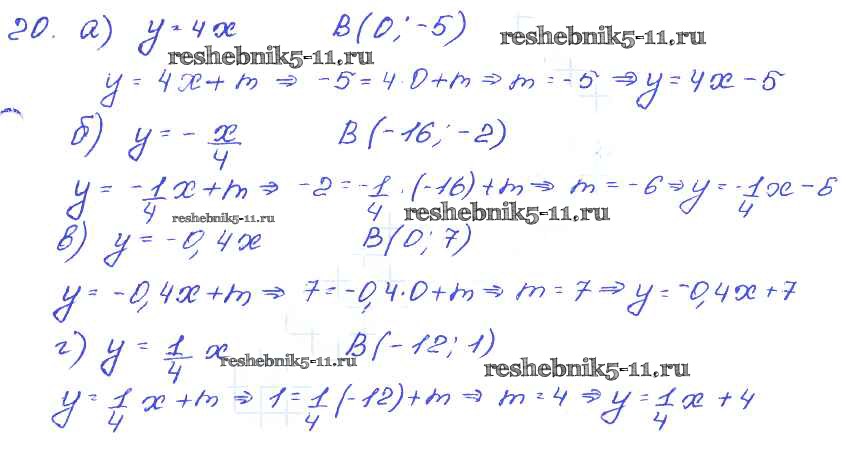 20. а) y = 4x B(0; -5) reshebnik5-11.ru
reshebnik5-11.ru
y = 4x + m ⇒ -5 = 4·0 + m ⇒ m = -5 ⇒ y = 4x - 5
б) y = - x/4 B(-16; -2)
y = -1/4 x + m ⇒ -2 = -1/4 · (-16) + m ⇒ m = -6 ⇒ y = -1/4 x - 6
reshebnik5-11.ru reshebnik5-11.ru
в) y = -0,4x B(0; 7)
y = -0,4x + m ⇒ 7 = -0,4·0 + m ⇒ m = 7 ⇒ y = -0,4x + 7
г) y = 1/4 x B(-12; 1)
reshebnik5-11.ru reshebnik5-11.ru
y = 1/4 x + m ⇒ 1 = 1/4 (-12) + m ⇒ m = 4 ⇒ y = 1/4 x + 4